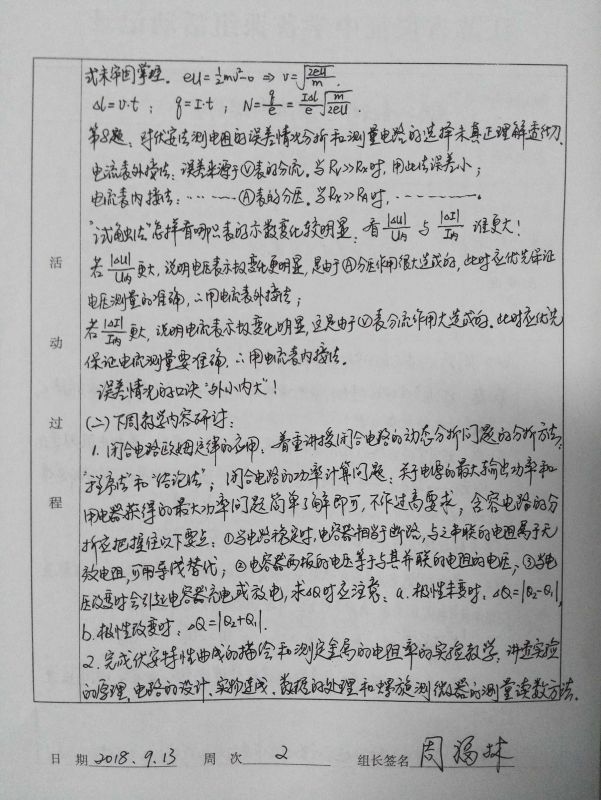 式未牢固掌握。eU=½mv²-0 ⇒ v=√(2eU/m).
Δl=v·t; q=I·t; N=q/e=IΔl/e √(m/2eU).
第8题:对伏安法测电阻的误差情况分析和测量电路的选择未真正理解透彻.
电流表外接法:误差来源于Ⓥ表的分流。当Rv>>Rx时,用此法误差小;
电流表内接法:……Ⓐ表的分压。当Rx>>RA时,…………。
"试触法"怎样看哪只表的示数变化较明显:看|ΔU|/U内与|ΔI|/I内谁更大!
若|ΔU|/U内更大,说明电压表示数变化更明显,是由于Ⓐ分压作用很大造成的,此时应优先保证
电压测量的准确,∴用电流表外接法;
若|ΔI|/I内更大,说明电流表示数变化明显,这是由于Ⓥ表分流作用大造成的.此时应优先
保证电流测量要准确,∴用电流表内接法.
误差情况的口诀"外小内大"!
(二)下周教学内容研讨:
1.闭合电路欧姆定律的应用:着重讲授闭合电路的动态分析问题的分析方法:
"程序法"和"结论法";闭合电路的功率计算问题:关于电源的最大输出功率和
用电器获得的最大功率问题简单了解即可,不作过高要求;含容电路的分
析应把握住以下要点:①当电路稳定时,电容器相当于断路,与之串联的电阻属于无
效电阻,可用导线替代;②电容器两板的电压等于与其并联的电阻的电压;③当电
压改变时会引起电容器充电或放电,求ΔQ时应注意:a.极性未变时:ΔQ=|Q₂-Q₁|,
b.极性改变时:ΔQ=|Q₂+Q₁|.
2.完成伏安特性曲线的描绘和测定金属的电阻率的实验教学,讲透实验
的原理、电路的设计、实物连线、数据的处理和螺旋测微器的测量读数方法.
活动过程
日 期 2018.9.13 周 次 2 组长签名 周福林